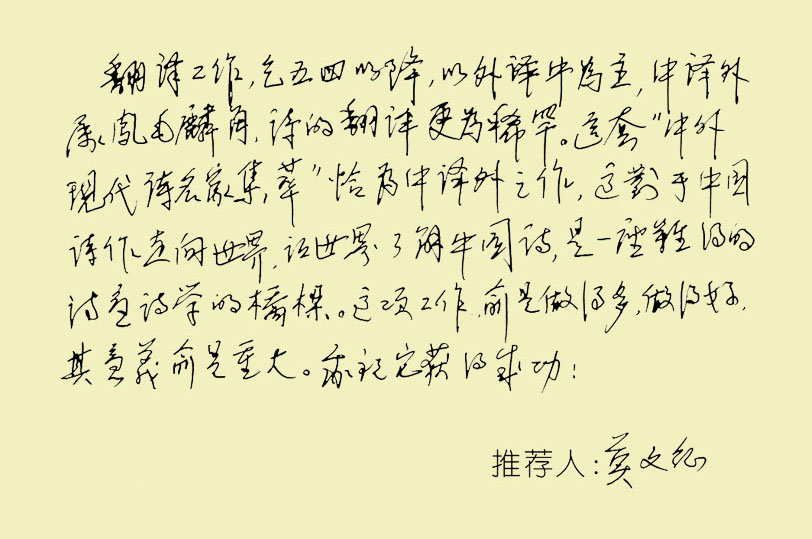 翻译工作,乞五四以降,以外译中为主,中译外
属凤毛麟角,诗的翻译更为稀罕。这套"中外
现代诗名家集萃"恰为中译外之作,这對于中国
诗作走向世界,让世界了解中国诗,是一座难得的
诗意诗学的橋樑。这项工作,俞是做得多,做得好,
其意義俞是重大。我祝它获得成功!
推荐人:莫文征